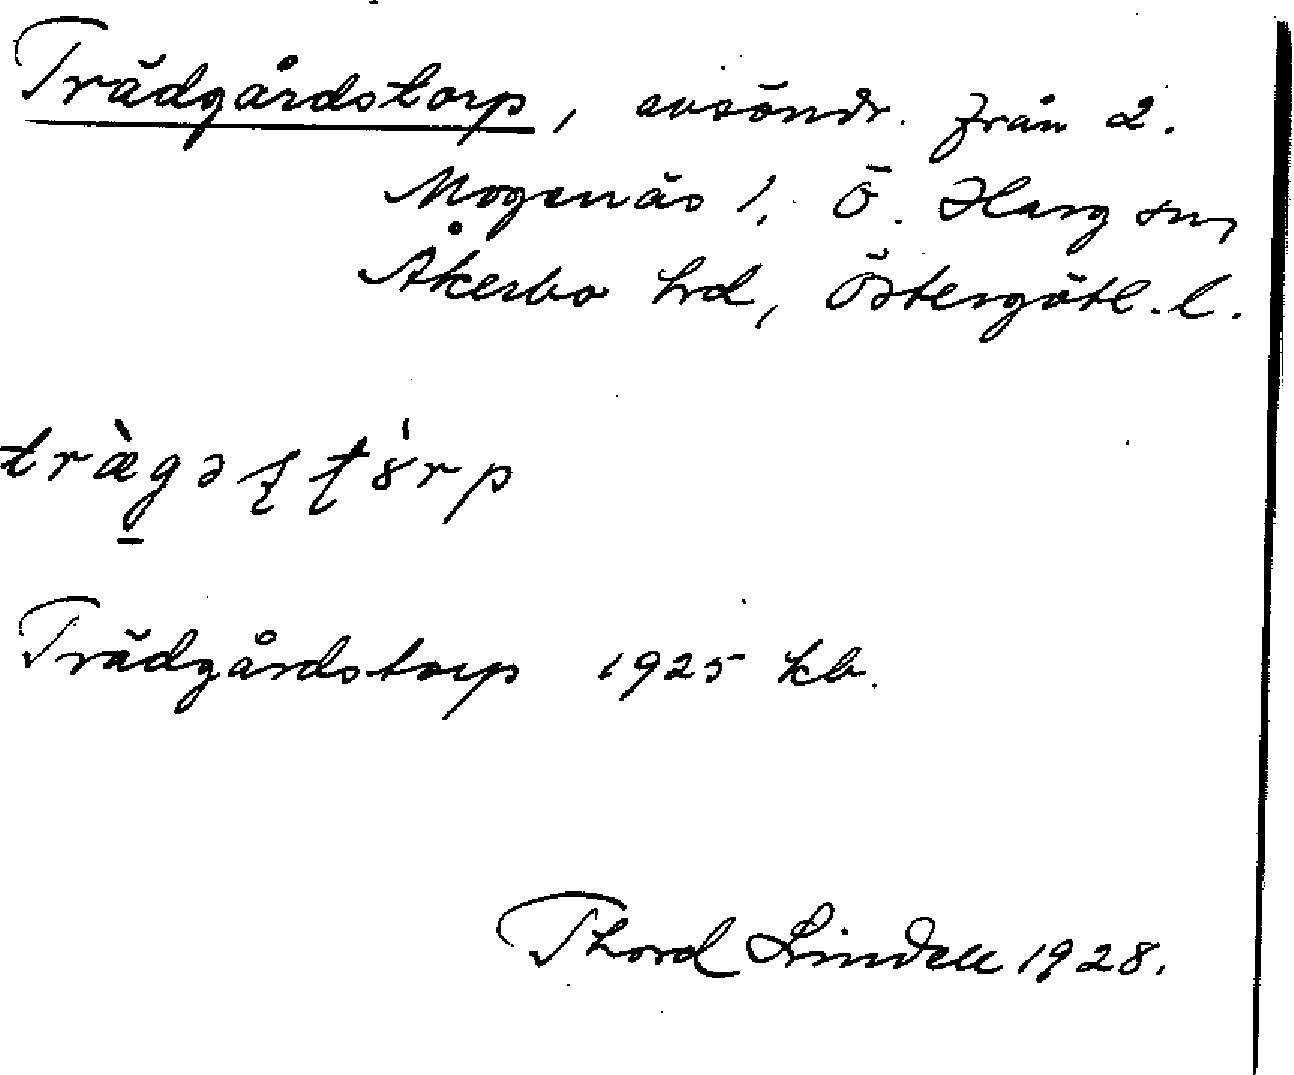 Trädgårdstorp, avsöndr. från 2.
Mogenäs 1, Ö. Harg sn,
Åkerbo hd, Östergötl. l.
træ̀gəʂʈórp
Trädgårdstorp 1925 kb.
Thord Lindell 1928.